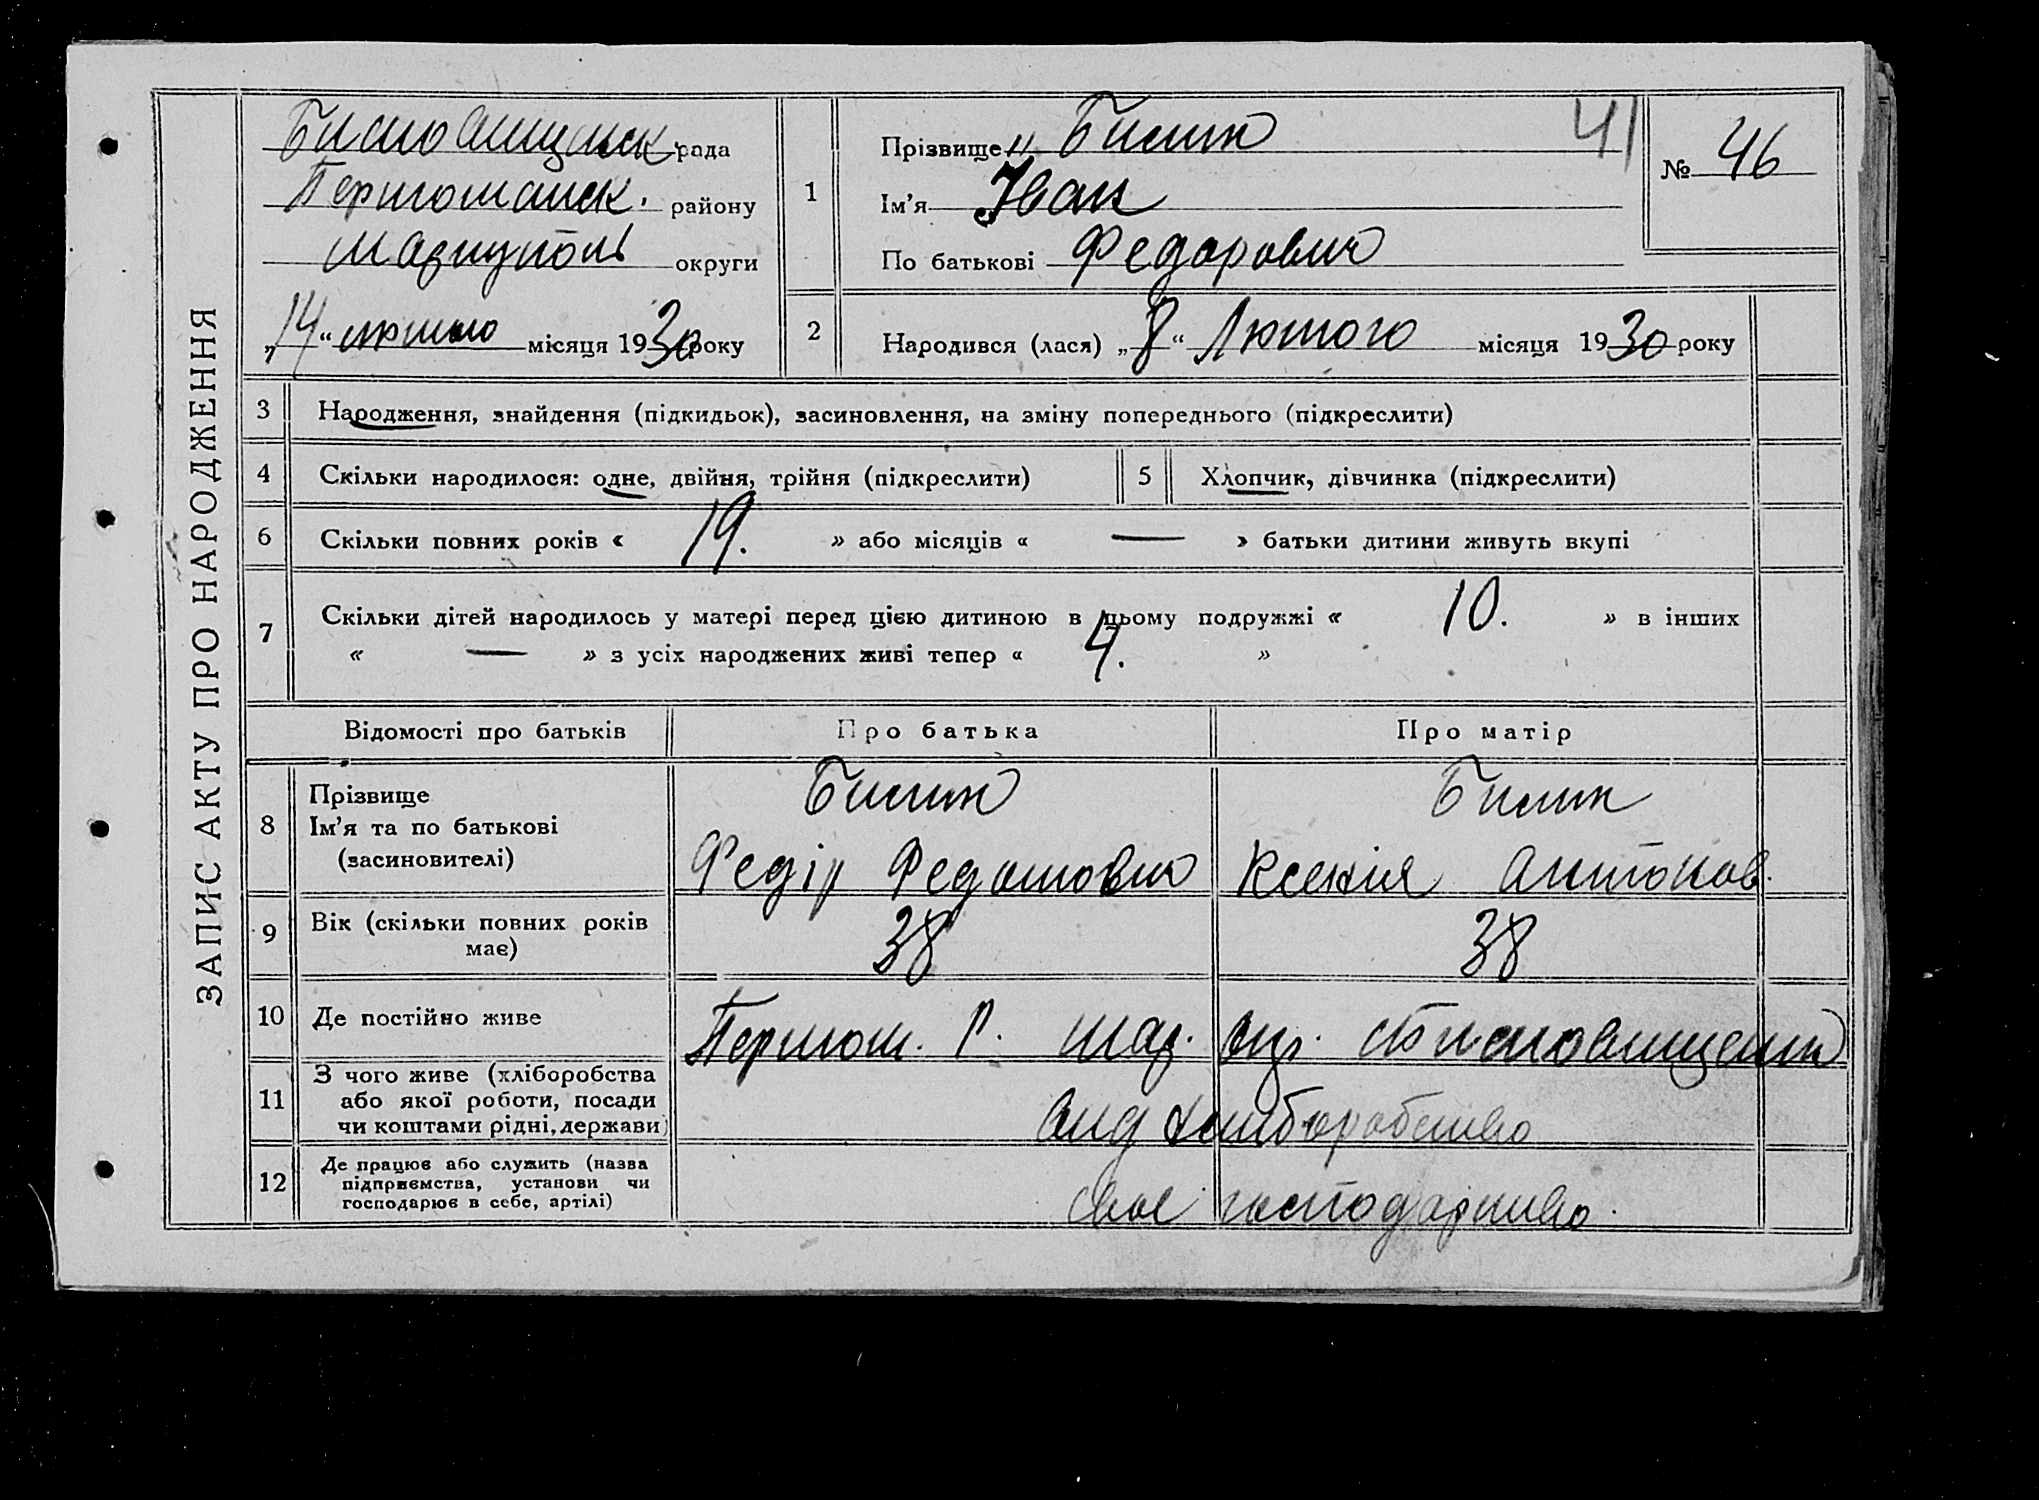 ЗАПИС АКТУ ПРО НАРОДЖЕННЯ
рада
району
Мариуполь округи
„14“ лютого місяця 1930 року
1
Прізвище Билик
Ім’я Іван
По батькові Федорович
41
№ 46
2
Народився (лася) „8“ Лютого місяця 1930 року
3
Народження, знайдення (підкидьок), засиновлення, на зміну попереднього (підкреслити)
4
Скільки народилося: одне, двійня, трійня (підкреслити)
5
Хлопчик, дівчинка (підкреслити)
6
Скільки повних років « 19. » або місяців « — » батьки дитини живуть вкупі
7
Скільки дітей народилось у матері перед цією дитиною в цьому подружжі « 10. » в інших
« — » з усіх народжених живі тепер « 4. »
Відомості про батьків
Про батька
Про матір
8
Прізвище
Ім’я та по батькові
(засиновителі)
Билик
Федір
Билик
Ксенія Антонов.
9
Вік (скільки повних років
має)
38
38
10
Де постійно живе
11
З чого живе (хліборобства
або якої роботи, посади
чи коштами рідні, держави)
від хліборобство
12
Де працює або служить (назва
підприємства, установи чи
господарює в себе, артілі)
своє господарство.